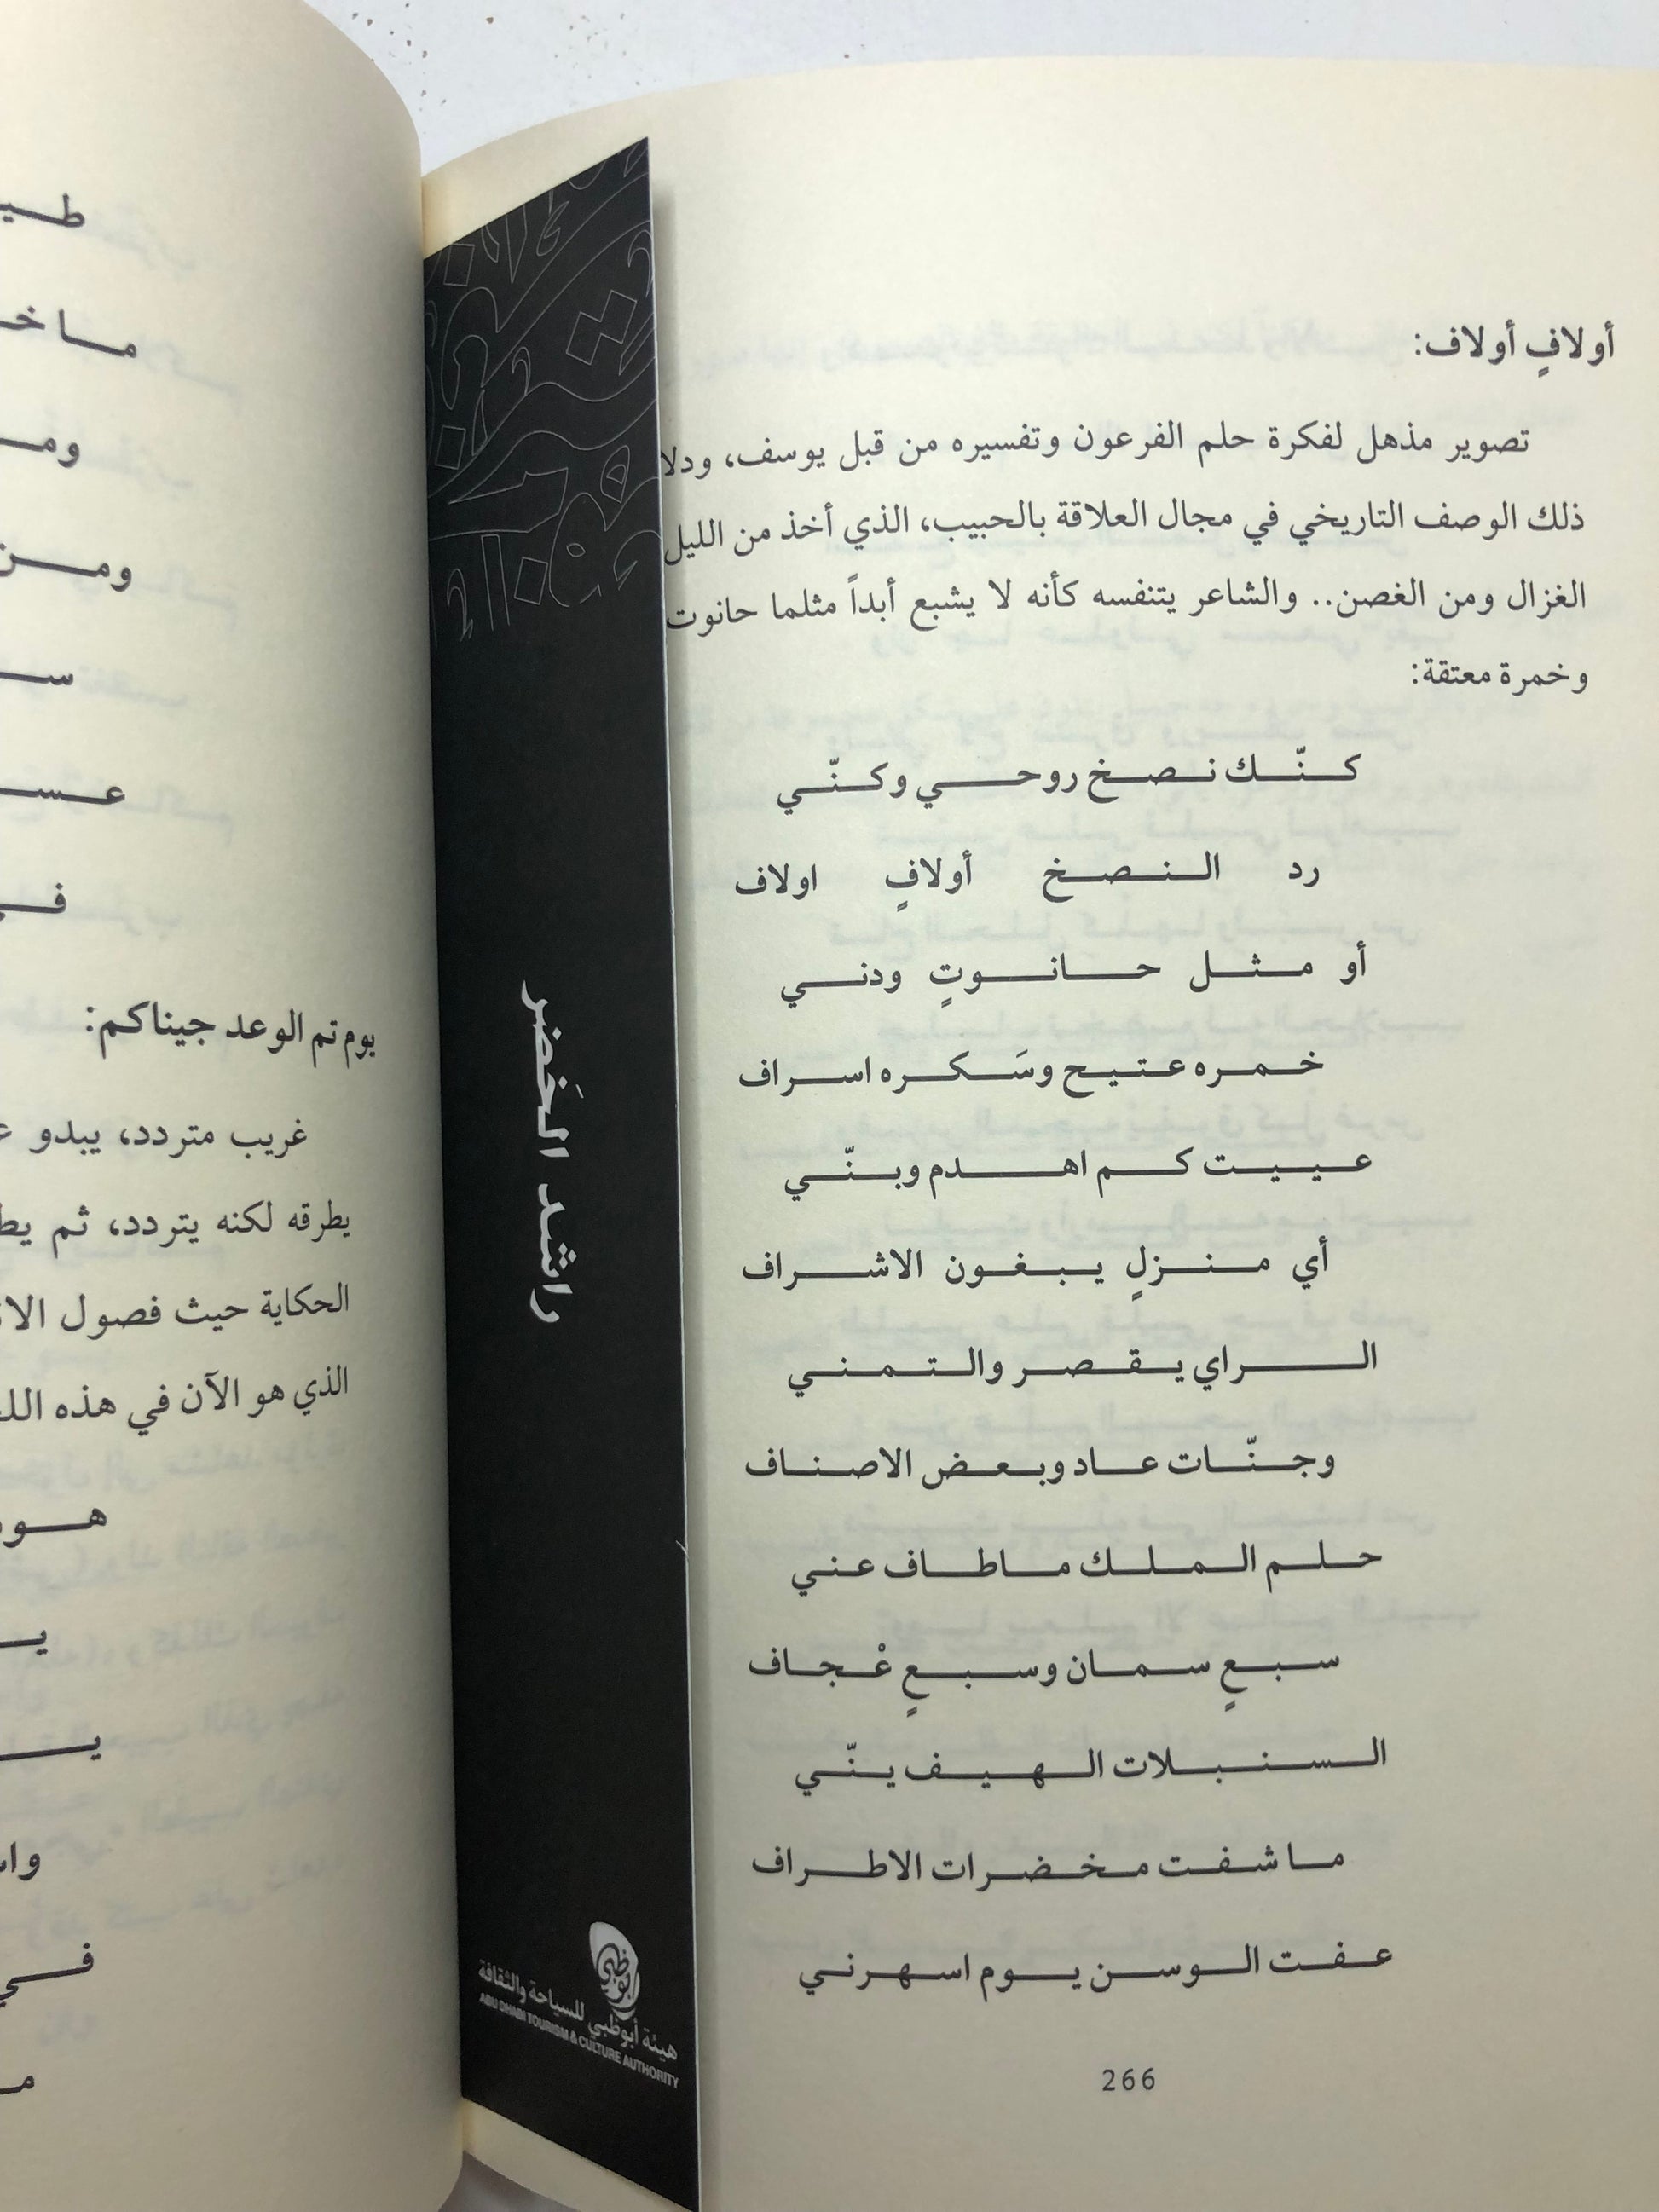 أولافٍ أولاف:
تصوير مذهل لفكرة حلم الفرعون وتفسيره من قبل يوسف، ودلا
ذلك الوصف التاريخي في مجال العلاقة بالحبيب، الذي أخذ من الليل
الغزال ومن الغصن.. والشاعر يتنفسه كأنه لا يشبع أبداً مثلما حانوت
وخمرة معتقة:
كنّك نصخ روحي وكنّي
رد النصخ أولافٍ اولاف
أو مثل حانوتٍ ودني
خمره عتيج وسَكره اسراف
عييت كم اهدم وبنّي
أي منزلٍ يبغون الاشراف
الراي يقصر والتمني
وجنّات عاد وبعض الاصناف
حلم الملك ماطاف عني
سبعٍ سمان وسبعٍ عْجاف
السنبلات الهيف ينّي
ما شفت مخضرات الاطراف
عفت الوسن يوم اسهرني
266
راشد الخَضر
هيئة أبوظبي للسياحة والثقافة
ABU DHABI TOURISM & CULTURE AUTHORITY
يوم تم الوعد جيناكم:
غريب متردد، يبدو
يطرقه لكنه يتردد، ثم
الحكاية حيث فصول
الذي هو الآن في هذه